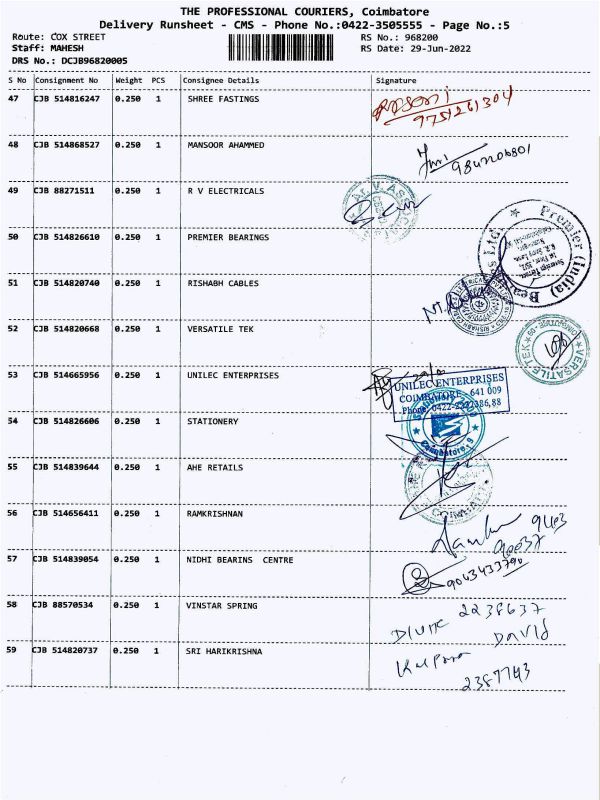 THE PROFESSIONAL COURIERS, Coimbatore
Delivery Runsheet - CMS - Phone No.:0422-3505555 - Page No.:5
Route: COX STREET
RS No.: 968200
Staff: MAHESH
RS Date: 29-Jun-2022
DRS No.: DCJB96820005
S No Consignment No Weight PCS Consignee Details Signature
47 CJB 514816247 0.250 1 SHREE FASTINGS
9751261304
48 CJB 514868527 0.250 1 MANSOOR AHAMMED
9842206801
49 CJB 88271511 0.250 1 R V ELECTRICALS
50 CJB 514826610 0.250 1 PREMIER BEARINGS
Premier (India) Bearings Ltd.
51 CJB 514820740 0.250 1 RISHABH CABLES
52 CJB 514820668 0.250 1 VERSATILE TEK
VERSATILE TEK
53 CJB 514665956 0.250 1 UNILEC ENTERPRISES
UNILEC ENTERPRISES
COIMBATORE - 641 009
54 CJB 514826606 0.250 1 STATIONERY
Coimbatore.9
55 CJB 514839644 0.250 1 AHE RETAILS
56 CJB 514656411 0.250 1 RAMKRISHNAN
57 CJB 514839054 0.250 1 NIDHI BEARINS CENTRE
9043433790
58 CJB 88570534 0.250 1 VINSTAR SPRING
2238637
DAVID
59 CJB 514820737 0.250 1 SRI HARIKRISHNA
Kalpana
2387743